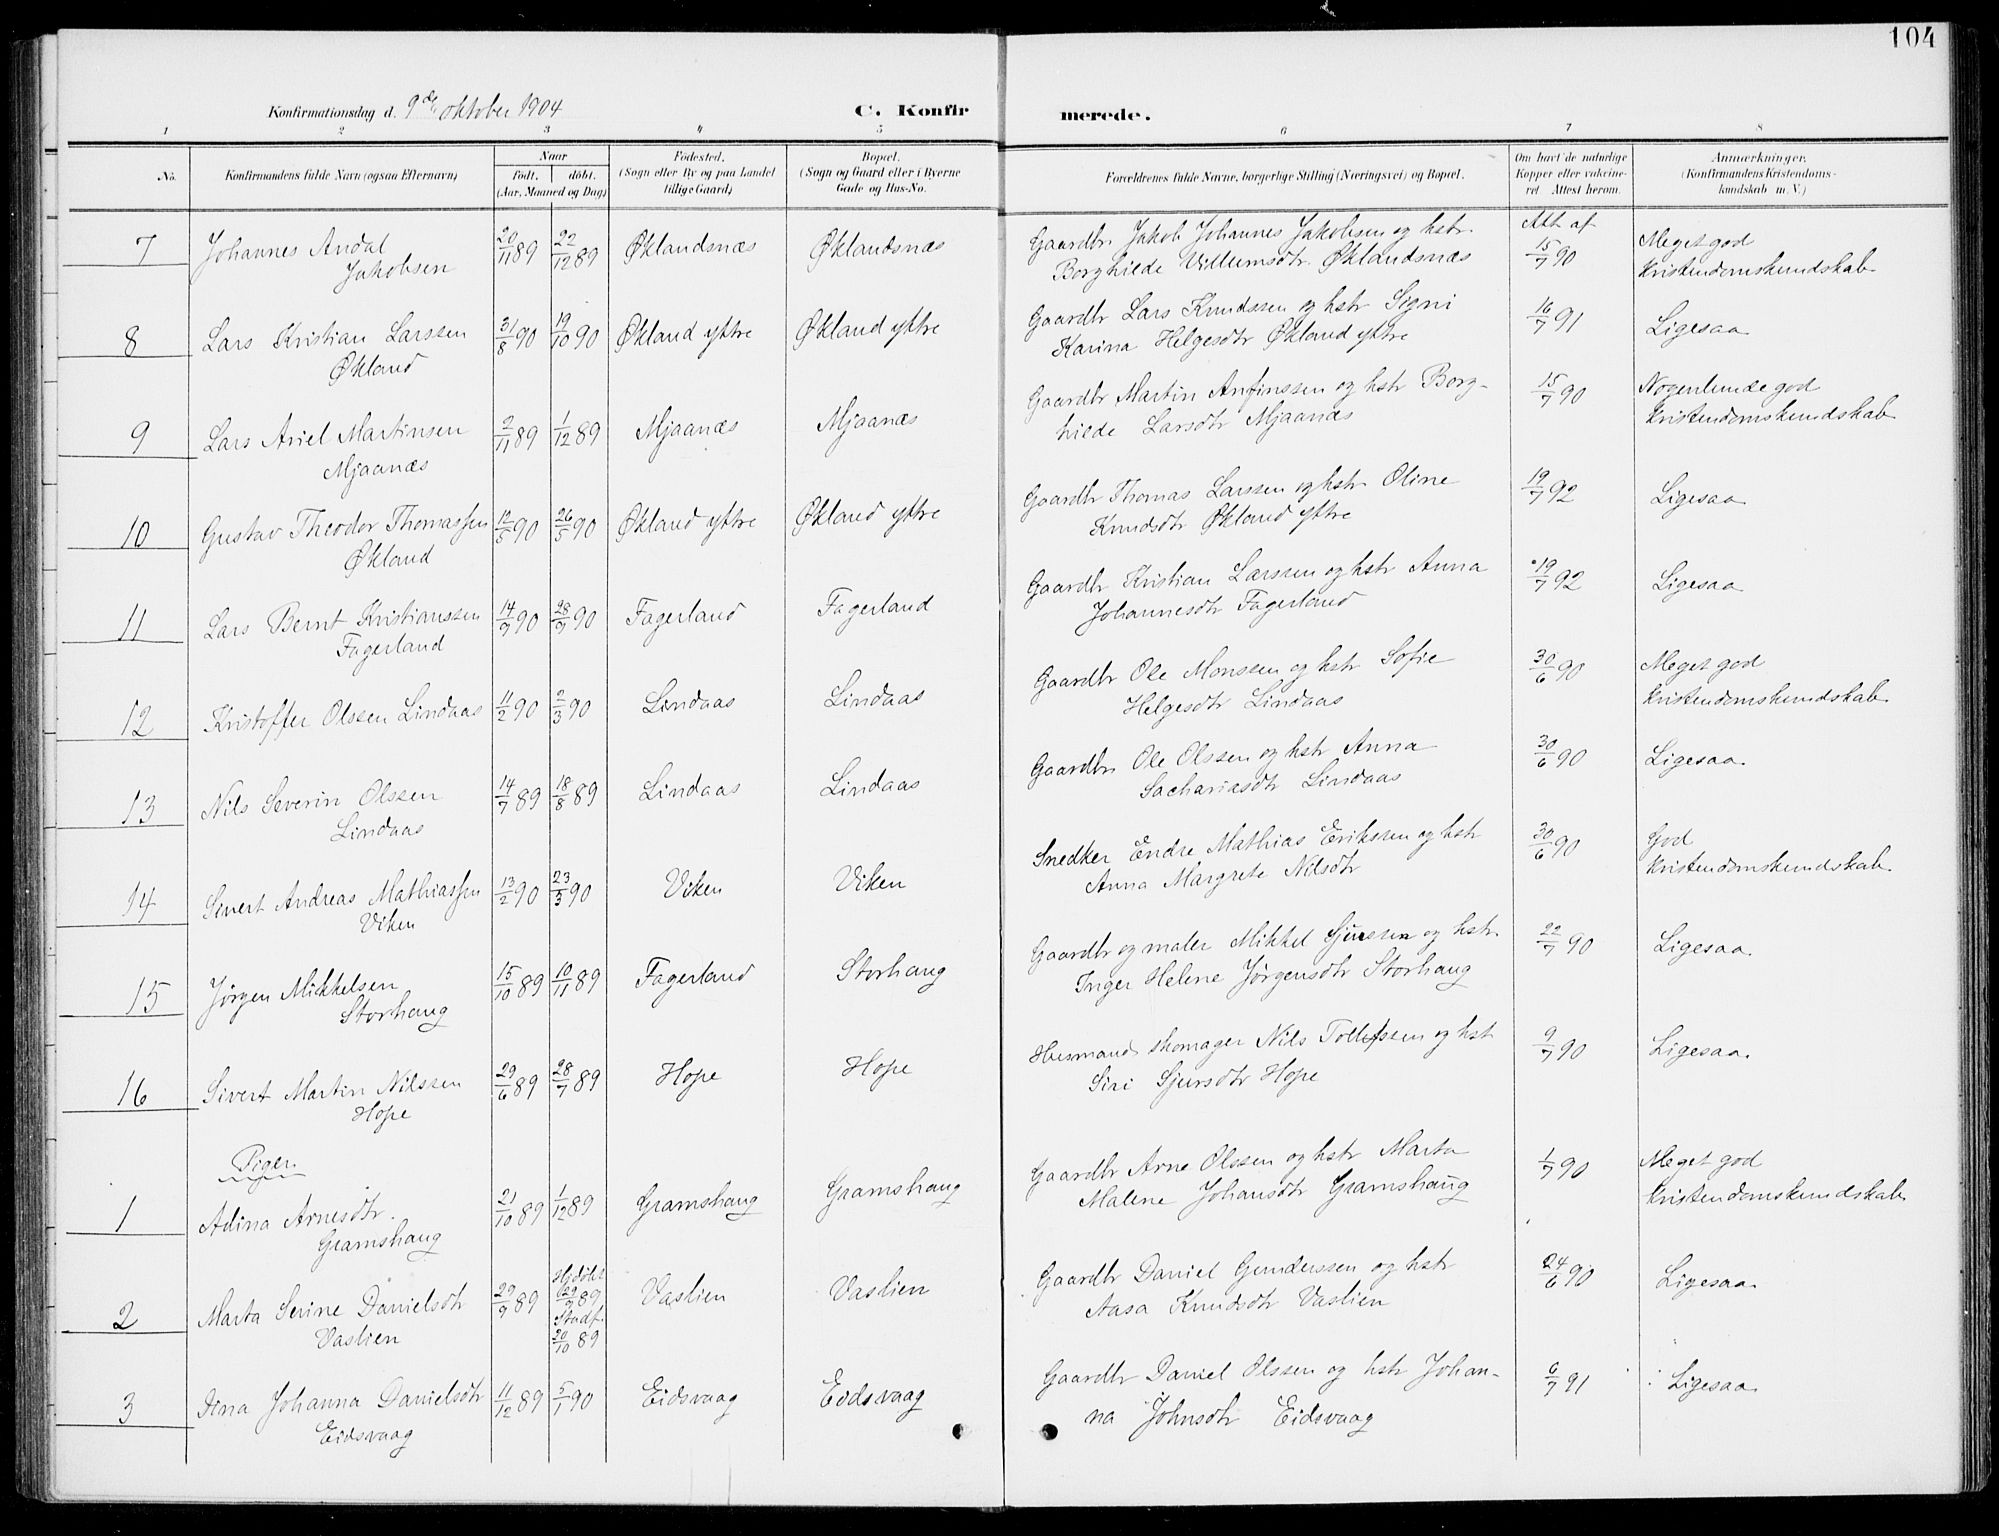 104
Konfirmationsdag d. 9de oktober 1904 C. Konfirmerede.
1 2 3 4 5 6 7 8
No. Konfirmandens fulde Navn (ogsaa Efternavn) Naar født. døbt. (Aar, Maaned og Dag) Fødested. (Sogn eller By og paa Landet tillige Gaard) Bopæl. (Sogn og Gaard eller i Byerne Gade og Hus-No. Forældrenes fulde Navne, borgerlige Stilling (Næringsvei) og Bopæl. Om havt de naturlige Kopper eller vakcineret. Attest herom. Anmærkninger. (Konfirmandens Kristendomskundskab m. V.)
7 Johannes Andal 20/11 89 22/12 89 Øklandsnæs Øklandsnæs Gaardbr. Jakob Johannes Jakobsen og hstr. Att af 15/7 90 Meget god
Jakobsen Borghilde Villumsdtr. Øklandsnæs Kristendomskundskab
8 Lars Kristian Larssen 31/8 90 19/10 90 Økland yttre Økland yttre Gaardbr Lars Knudssen og hstr Signi 16/7 91 Ligesaa
Økland Karina Helgesdtr Økland yttre
9 Lars Ariel Martinsen 2/11 89 1/12 89 Mjaanæs Mjaanæs Gaardbr Martin Anfinssen og hstr Borg- 15/7 90 Nogenlunde god
Mjaanæs hilde Larsdtr Mjaanæs Kristendomskundskab
10 Gustav Theodor Thomassen 12/5 90 26/5 90 Økland yttre Økland yttre Gaardbr Thomas Larssen og hstr Oline 19/7 92 Ligesaa
Økland Knudsdtr Økland yttre
11 Lars Bernt Kristianssen 14/7 90 28/7 90 Fagerland Fagerland Gaardbr Kristian Larssen og hstr Anna 19/7 92 Ligesaa
Fagerland Johannesdtr Fagerland
12 Kristoffer Olssen Lindaas 11/2 90 2/3 90 Lindaas Lindaas Gaardbr Ole Monssen og hstr Sofie 30/6 90 Meget god
Helgesdtr Lindaas Kristendomskundskab
13 Nils Severin Olssen 14/7 89 18/8 89 Lindaas Lindaas Gaardbr. Ole Olssen og hstr Anna 30/6 90 Ligesaa.
Lindaas Sachariasdtr Lindaas
14 Sivert Andreas Mathiassen 13/2 90 23/3 90 Viken Viken Snedker Endre Mathias Erikssen og hstr 30/6 90 God
Viken Anna Margrete Nilsdtr Kristendomskundskab.
15 Jørgen Mikkelsen 15/10 89 10/11 89 Fagerland Storhaug Gaardbr og maler Mikkel Sjurssen og hstr. 22/7 90 Ligesaa.
Storhaug Inger Helene Jørgensdtr Storhaug
16 Sivert Martin Nilssen 29/6 89 28/7 89 Hope Hope Husmand skomager Nils Tollefssen og hst 9/7 90 Ligesaa.
Hope Siri Sjursdtr Hope
Piger.
1 Adina Arnesdtr. 21/10 89 1/12 89 Gramshaug Gramshaug Gaardbr Arne Olssen og hstr Marta 1/7 90 Meget god
Gramshaug Malene Johansdtr Gramshaug Kristendomskundskab
2 Marta Serine Danielsdtr 29/9 89 Hjdøbt 29/9 89 Stadf. 20/10 89 Vaslien Vaslien Gaardbr Daniel Gunderssen og hstr 24/6 90 Ligesaa.
Vaslien Aasa Knudsdtr Vaslien
3 Dina Johanna Danielsdtr 11/12 89 5/1 90 Eidsvaag Eidsvaag Gaardbr Daniel Olssen og hstr Johan- 6/7 91 Ligesaa
Eidsvaag na Johnsdtr Eidsvaag